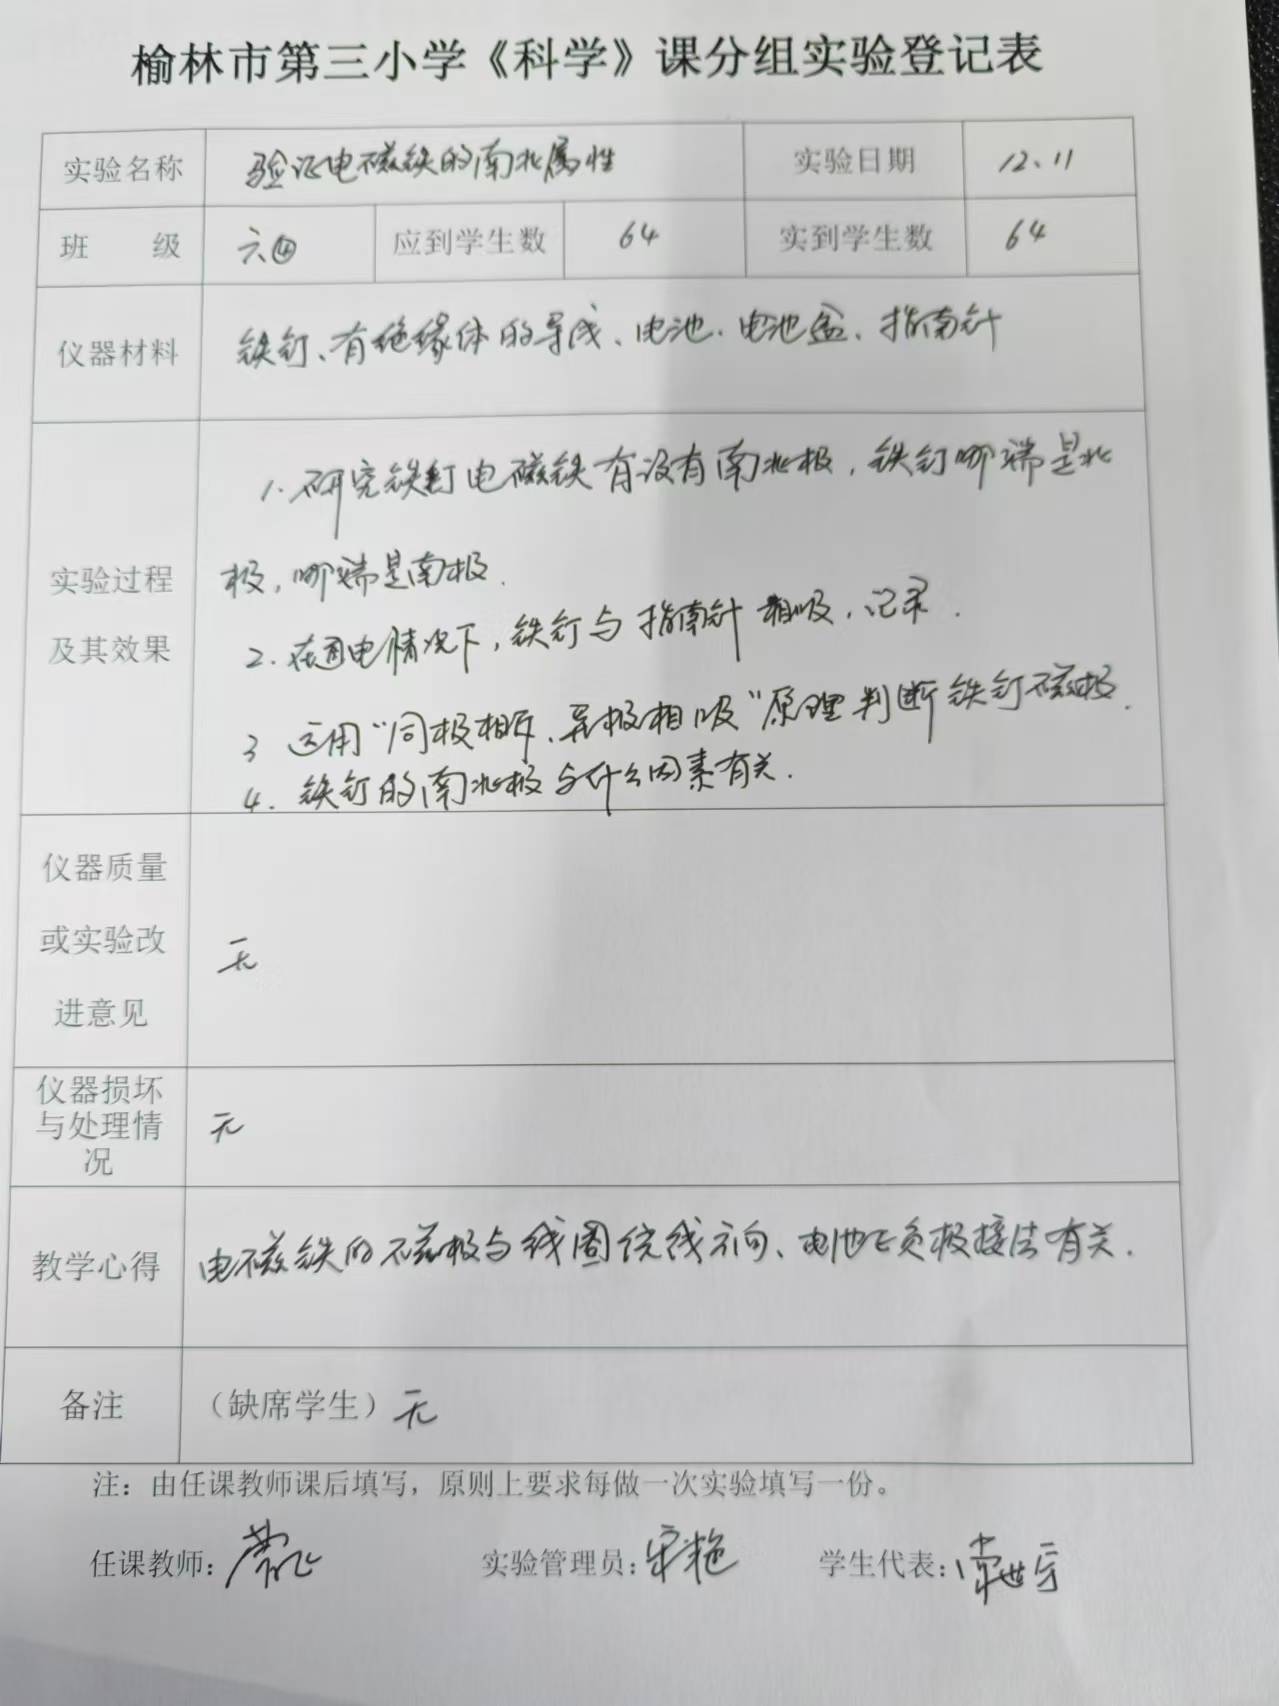 榆林市第三小学《科学》课分组实验登记表
实验名称 验证电磁铁的南北属性 实验日期 12、11
班 级 六④ 应到学生数 64 实到学生数 64
仪器材料 铁钉、有绝缘体的导线、电池、电池盒、指南针
1. 研究铁钉电磁铁有没有南北极，铁钉哪端是北
实验过程 极，哪端是南极.
及其效果 2. 在通电情况下，铁钉与指南针相吸，记录.
3 运用“同极相斥、异极相吸”原理判断铁钉磁极.
4. 铁钉的南北极与什么因素有关.
仪器质量
或实验改 无
进意见
仪器损坏
与处理情 无
况
教学心得 电磁铁的磁极与线圈绕线方向、电池正负极接法有关.
备注 （缺席学生）无
注：由任课教师课后填写，原则上要求每做一次实验填写一份。
任课教师： 实验管理员：宋艳 学生代表：